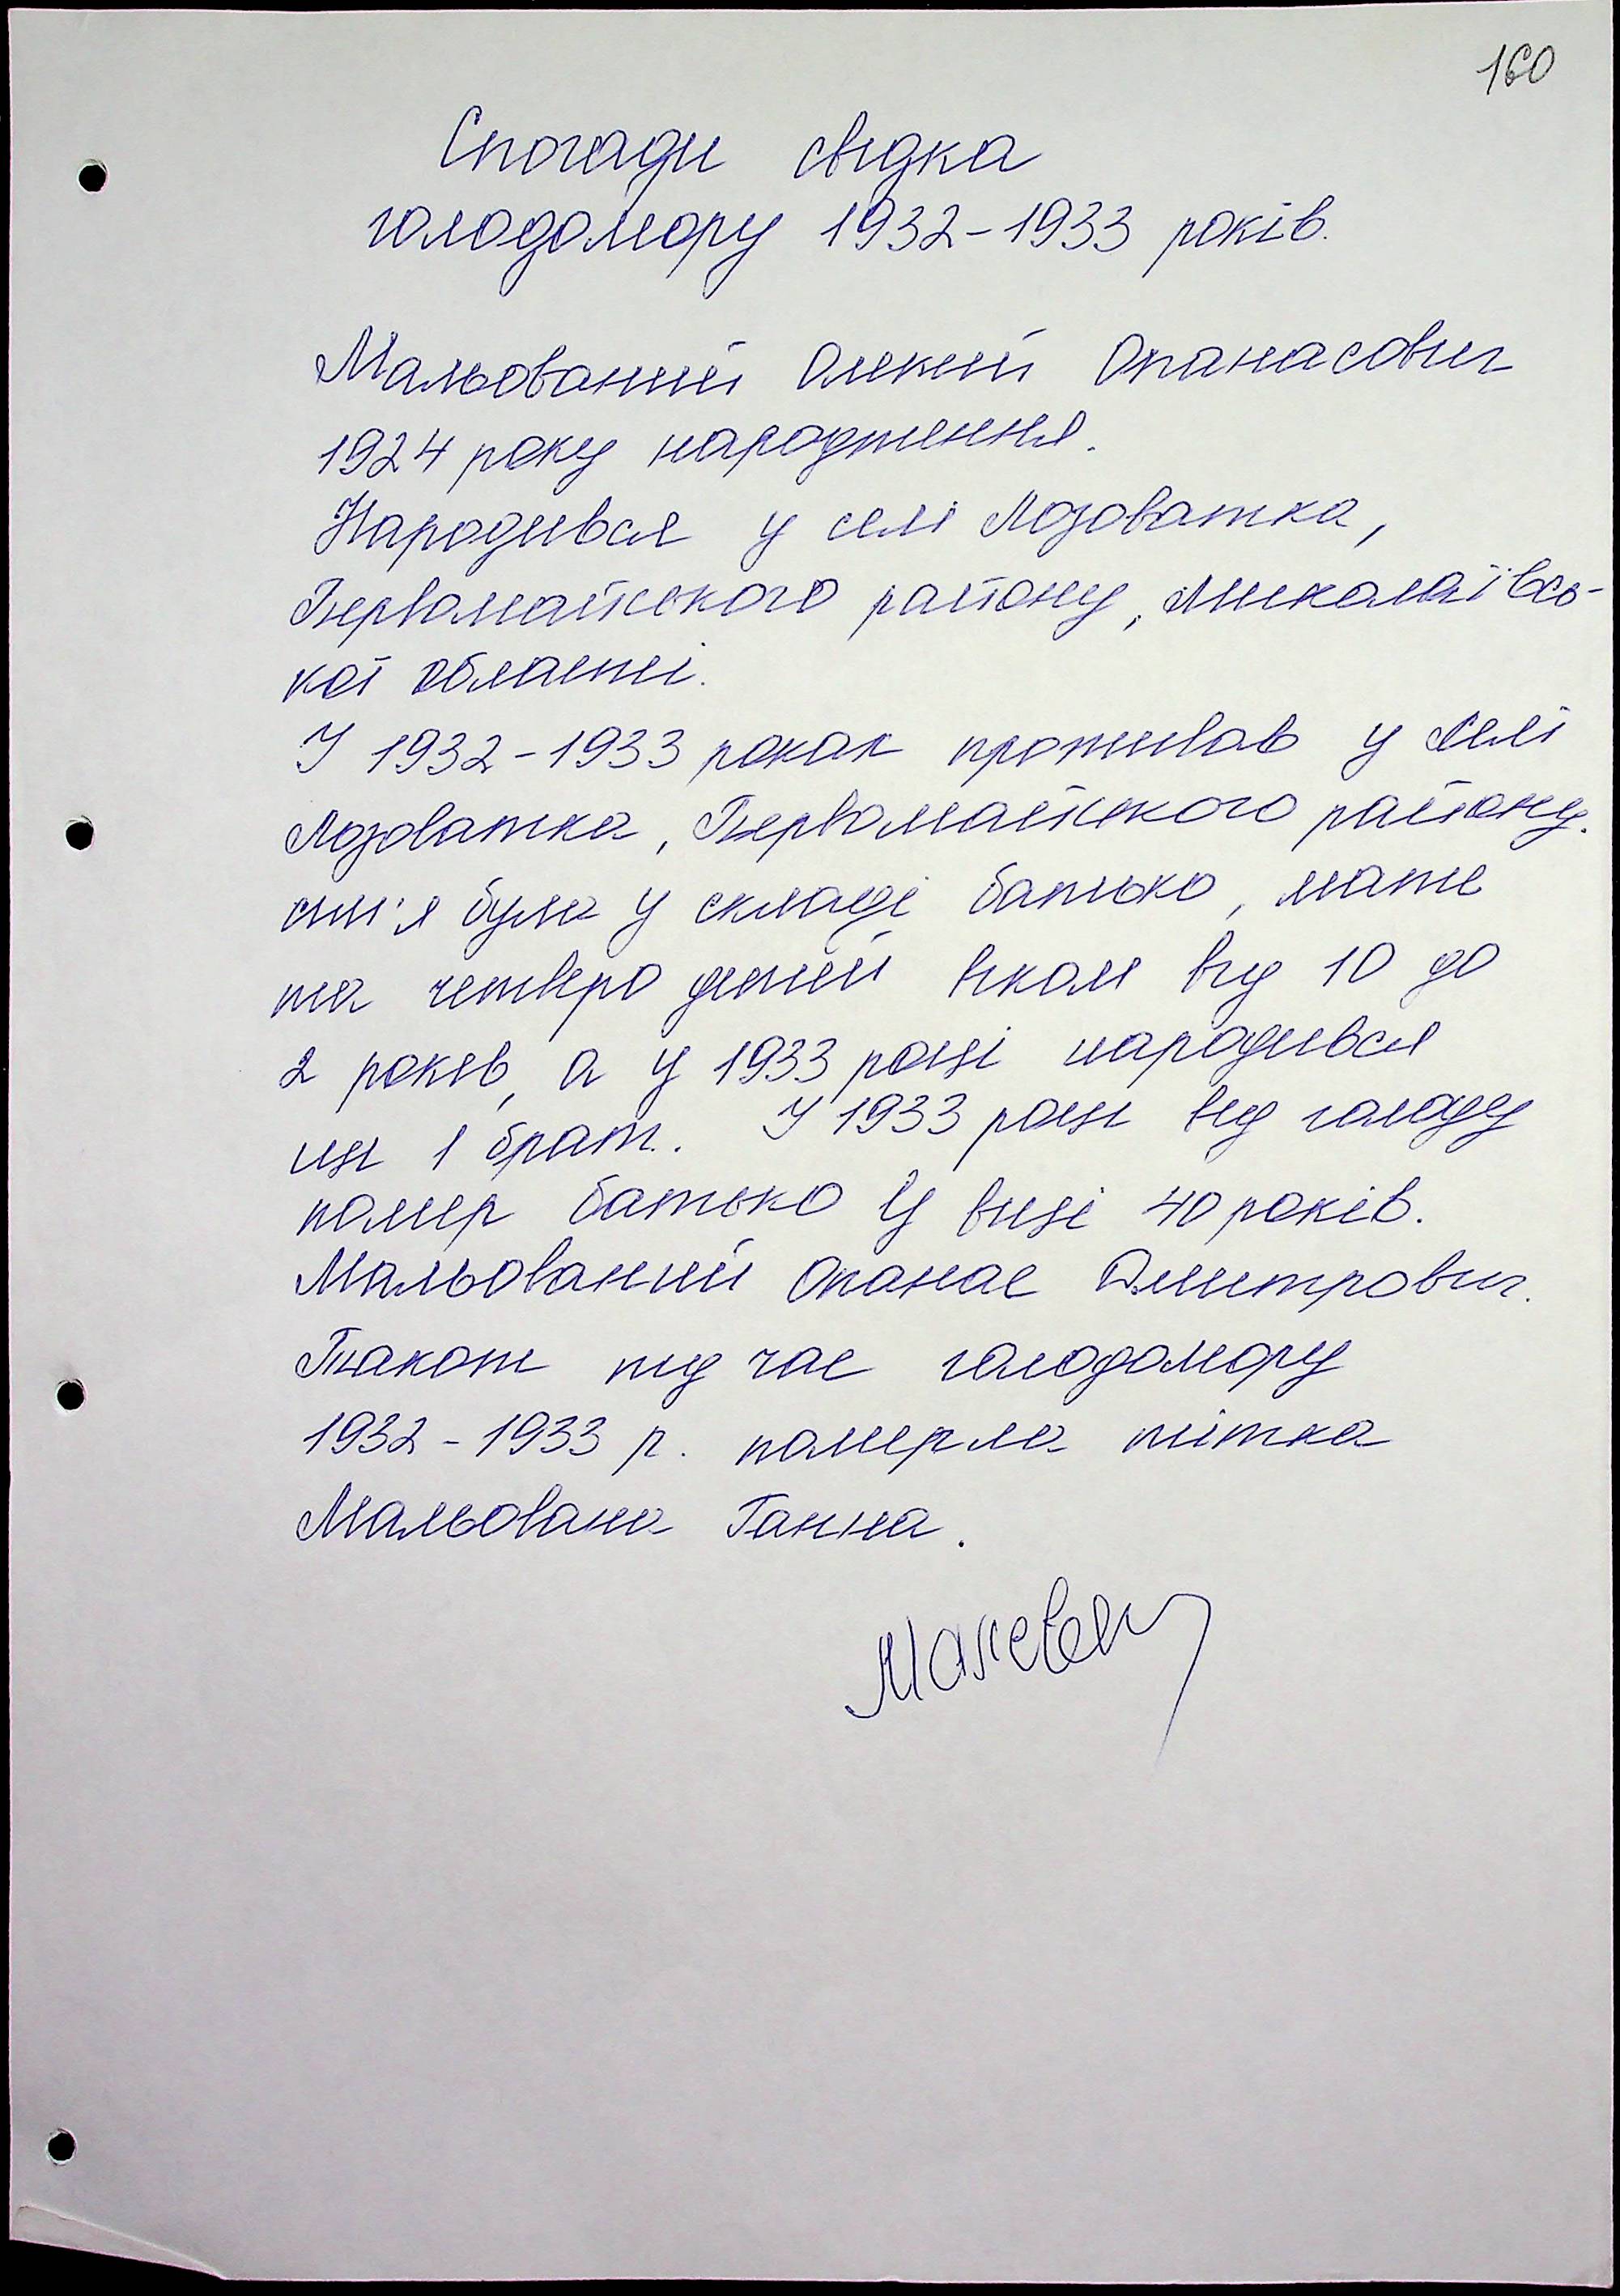 160
Спогади свідка
голодомору 1932-1933 років.
Мальований Олексій Опанасович
1924 року народження.
Народився у селі Лозоватка,
Первомайського району, Миколаївсь-
кої області.
У 1932-1933 роках проживав у селі
Лозоватка, Первомайського району.
сім'я була у складі батько, мати
та четверо дітей віком від 10 до
2 років, а у 1933 році народився
ще 1 брат. У 1933 році від голоду
помер батько у віці 40 років.
Мальований Опанас Дмитрович.
Також під час голодомору
1932-1933 р. померла тітка
Мальована Ганна.